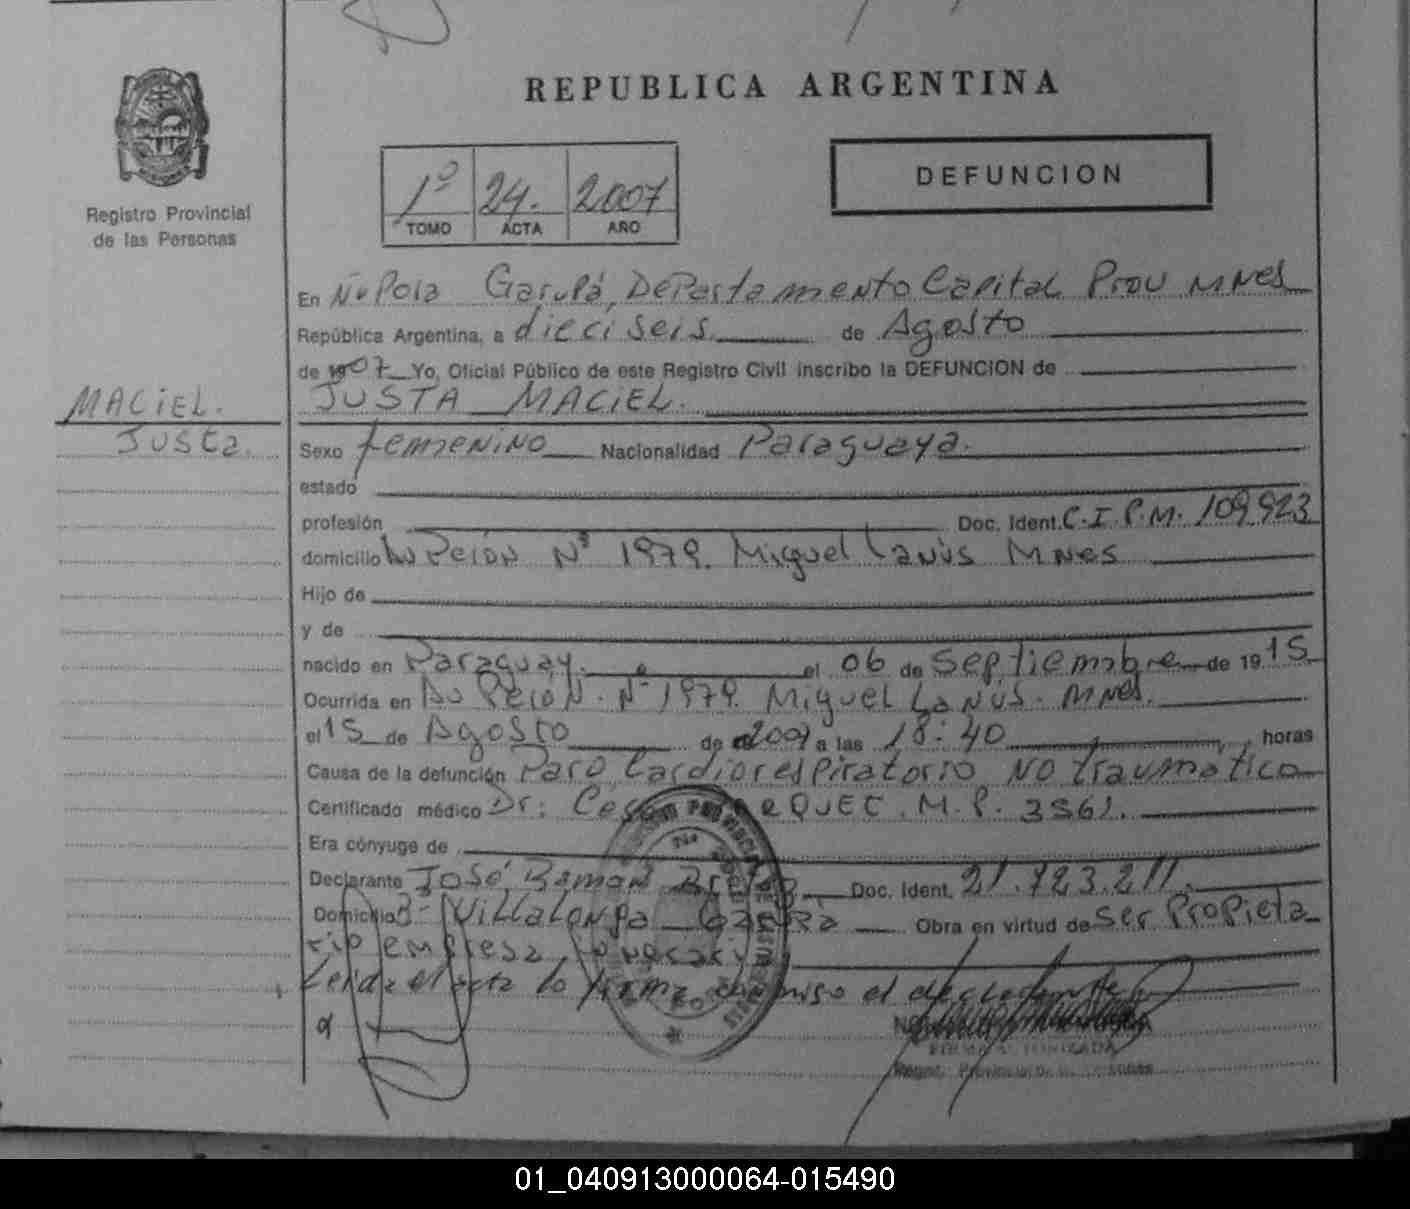 REPUBLICA ARGENTINA
DEFUNCION
Registro Provincial
de las Personas
1º 24. 2007
TOMO ACTA AÑO
En Garupá, Departamento Capital Prov MNes
República Argentina, a dieciseis de Agosto
de 07 Yo, Oficial Público de este Registro Civil inscribo la DEFUNCION de
MACIEL.
JUSTA MACIEL.
Justa.
Sexo femenino Nacionalidad Paraguaya.
estado
profesión Doc. Ident. C.I.P.M. 109.923
domicilio Nº 1979. Miguel Lanús MNes
Hijo de
y de
nacido en Paraguay. el 06 de Septiembre de 1915
Ocurrida en Nº 1979. Miguel Lanús. MNes.
el 15 de Agosto de 2007 a las 18:40 horas
Causa de la defunción Paro Cardiorespiratorio NO traumatico
Certificado médico Dr: M.P. 3361.
Era cónyuge de
Declarante José Ramon Doc. Ident. 21.723.211.
Domicilio Villalonga Garupá Obra en virtud de ser Propieta
rio empresa
Leida el acta lo firma conmigo el declarante
01_040913000064-015490